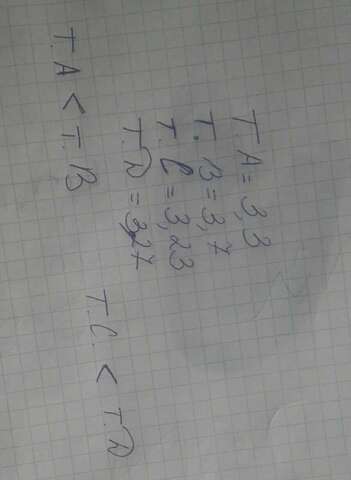 Т.А = 3,3
Т.В = 3,7
Т.С = 3,23
Т.D = 3,27
Т.А < Т.В
Т.С. < Т.D